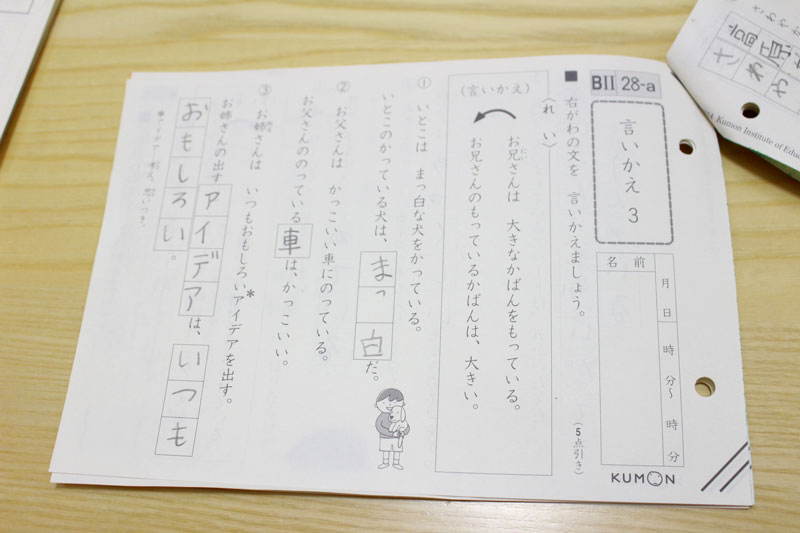 BII 28-a
言いかえ 3
名前
月 日
時 分〜 時 分
KUMON
■ 右がわの文を 言いかえましょう。
(5点引き)
〈れい〉
お兄さんは 大きなかばんをもっている。
にい
(言いかえ)
お兄さんのもっているかばんは、大きい。
① いとこは まっ白な犬をかっている。
いとこのかっている犬は、まっ白だ。
② お父さんは かっこいい車にのっている。
お父さんののっている車は、かっこいい。
③ お姉さんは いつもおもしろいアイデア*を出す。
お姉さんの出すアイデアは、いつも
おもしろい。
さわやか
高原
さわわ
Kumon Institute of Educ